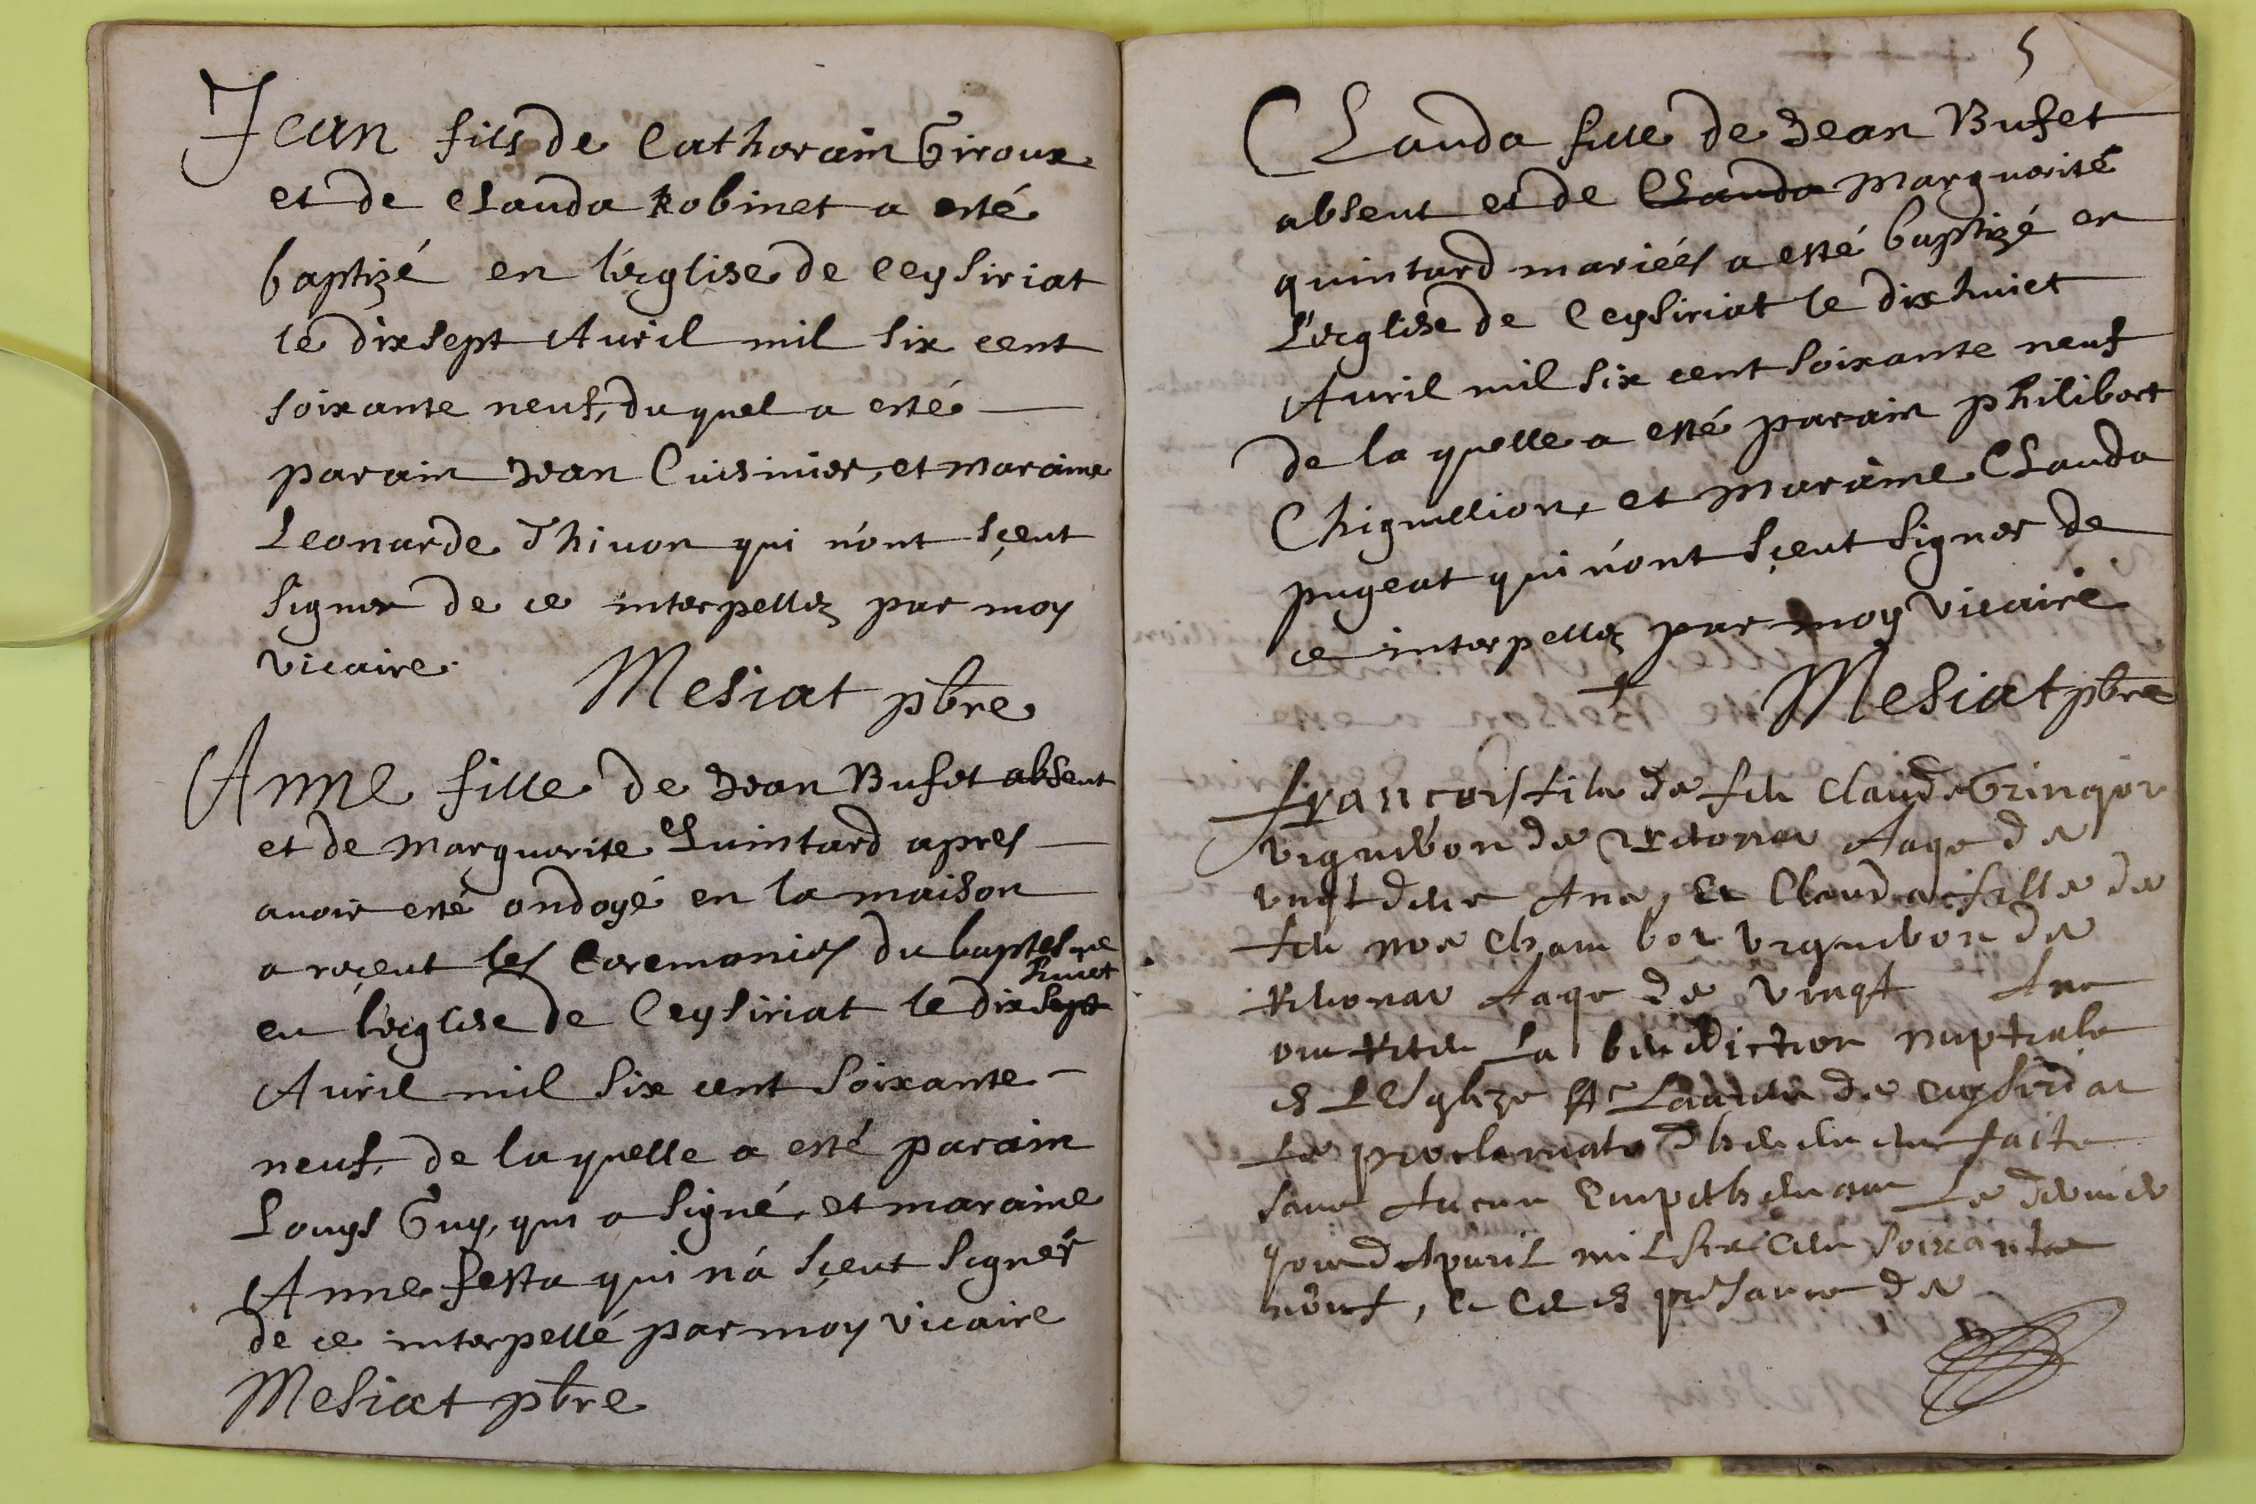 Jean fils de Catherain Giroux
et de Clauda Robinet a esté
baptizé en l'ecglise de Ceysiriat
le dixsept Auril mil six cent
soixante neuf, duquel a esté
parain Jean Cuisinier, et maraine
Leonarde Thiuon qui n'ont sçeut
signer de ce interpellez par moy
vicaire.
Mesiat pbre
Anne fille de Jean Bufet absent
et de Marguerite Quintard apres
auoir esté ondoyé en la maison
a reçeut les Ceremonies du baptesme
huict
en l'ecglise de Ceysiriat le dix sept
Auril mil six cent soixante
neuf, de laquelle a esté parain
Louys Guy, qui a signé, et maraine
Anne festa qui n'a sçeut signer
de ce interpellé par moy vicaire
Mesiat pbre
5
Clauda fille de Jean Bufet
absent et de Clauda Marguerite
quintard mariéés a esté baptizé en
l'ecglise de Ceysiriat le dixhuict
Auril mil six cent soixante neuf
de la quelle a esté parain philibert
Chiguillion, et maraine Clauda
pugeat qui n'ont sçeut signer de
ce interpellez par moy vicaire
Mesiat pbre
françois fils de feu Claude
vigneron de aage de
vingt deux ans, et Clauda fille de
feu vigneron de
aage de vingt ans
la benediction nuptiale
de Ceysiriat
faite
sans aucun empeschement le dernier
jour d'Apuril mil six cens soixante
neuf, et ce en presance de